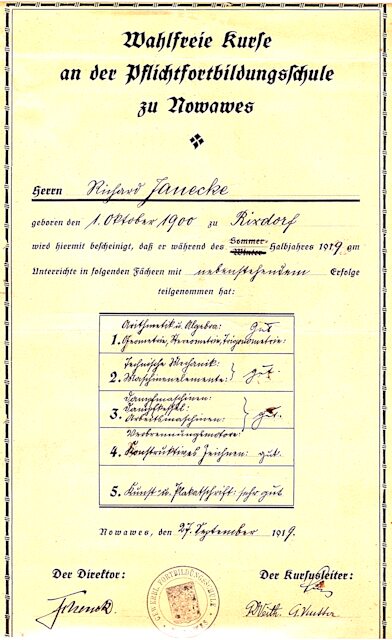 Wahlfreie Kurse
an der Pflichtfortbildungsschule
zu Nowawes
Herrn Richard Janecke
geboren den 1. Oktober 1900 zu Rixdorf
wird hiermit bescheinigt, daß er während des Sommer- Winter- Halbjahres 1919 am
Unterrichte in folgenden Fächern mit nebenstehendem Erfolge
teilgenommen hat:
Arithmetik u. Algebra: gut
1. Geometrie, Stereometrie, Trigonometrie:
Technische Mechanik:
2. Maschinenelemente: gut.
Dampfmaschinen:
Dampfkessel:
3. Arbeitsmaschinen: gut.
Verbrennungsmotore:
4. Konstruktives Zeichnen: gut.
5. Kunst u. Plakatschrift: sehr gut
Nowawes, den 27. September 1919.
Der Direktor: Der Kursusleiter: